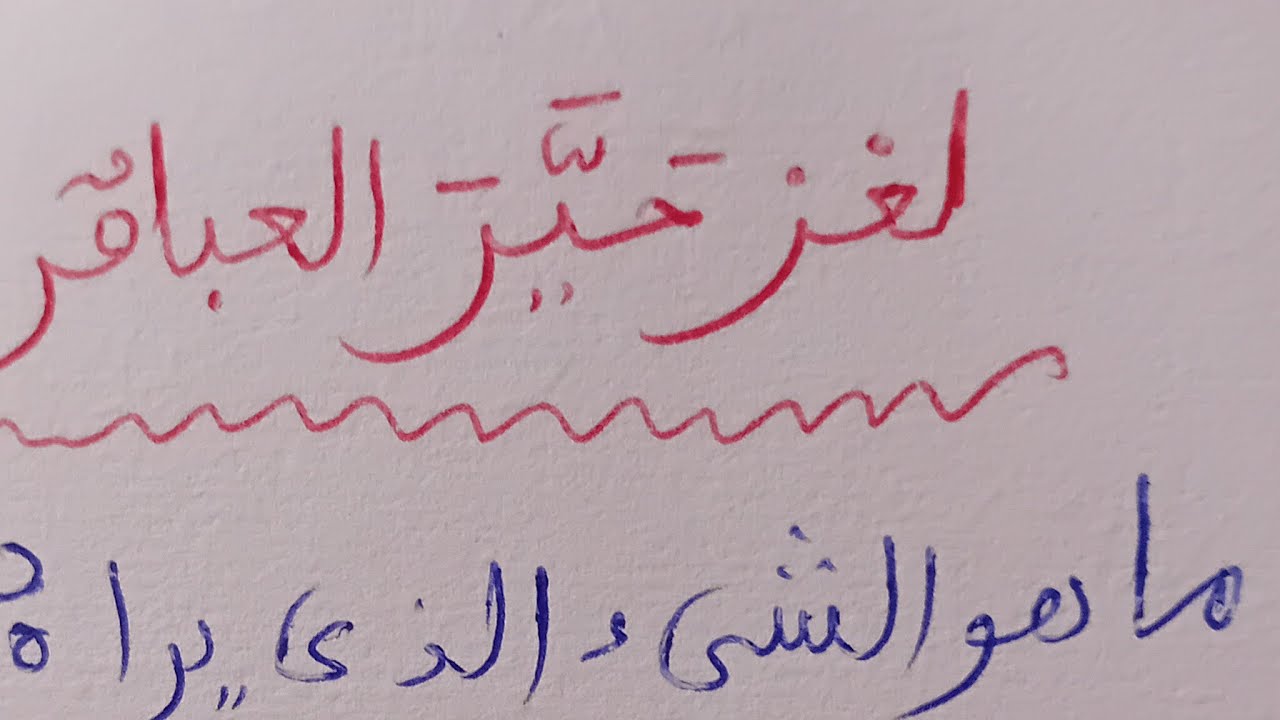 لغز حَيَّرَ العباقر
ما هو الشىء الذى يراه